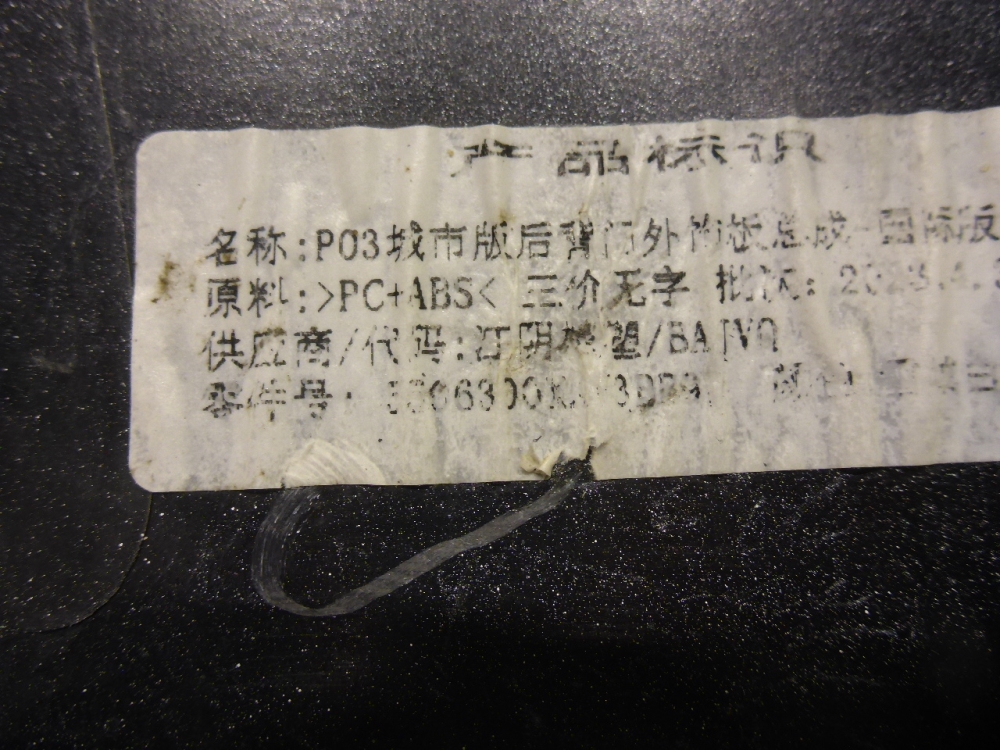 产品标识
名称:P03城市版后背门外饰板总成-国际版
原料:>PC+ABS< 三价无字 批次:
供应商/代码:江阴模塑/
零件号: